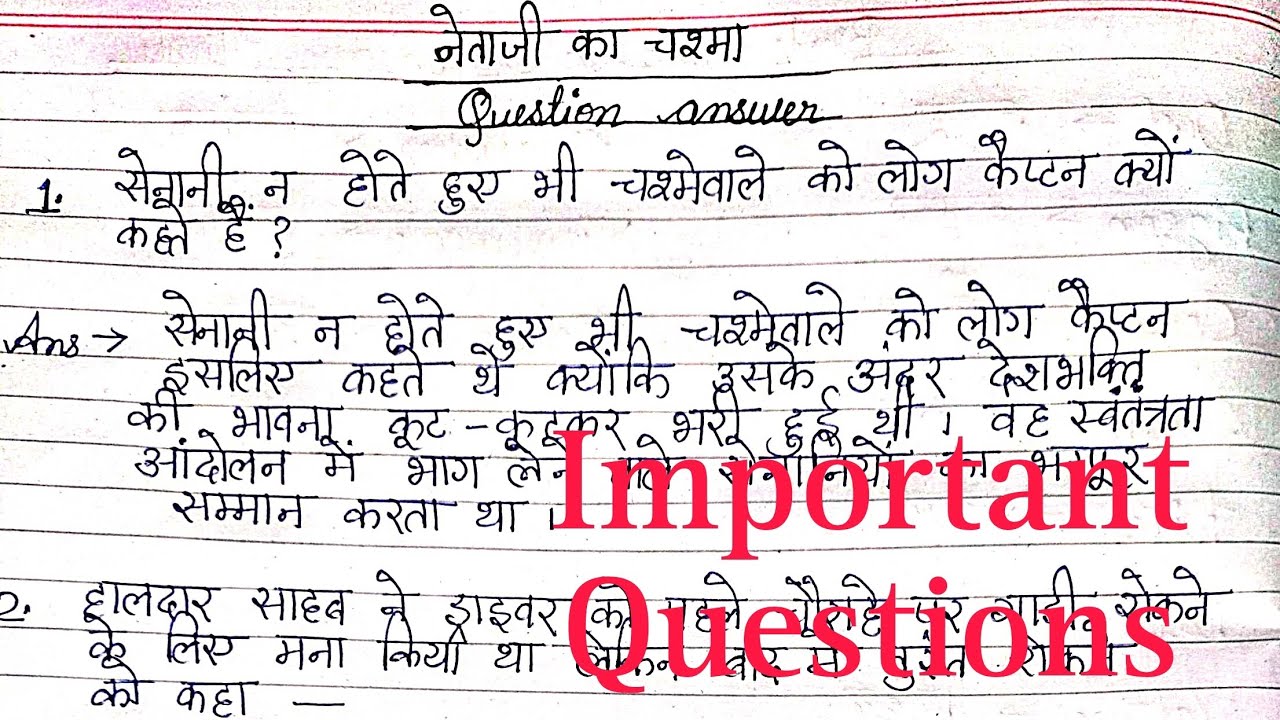 नेताजी का चश्मा
Question answer
1. सेनानी न होते हुए भी चश्मेवाले को लोग कैप्टन क्यों
कहते हैं ?
Ans → सेनानी न होते हुए भी चश्मेवाले को लोग कैप्टन
इसलिए कहते थे क्योंकि उसके अंदर देशभक्ति
की भावना कूट-कूटकर भरी हुई थी । वह स्वतंत्रता
आंदोलन में भाग लेने वाले सेनानियों का भरपूर
सम्मान करता था ।
Important
2. हालदार साहब ने ड्राइवर को पहले चौराहे पर गाड़ी रोकने
Questions
के लिए मना किया था लेकिन बाद में तुरंत रोकने
को कहा —